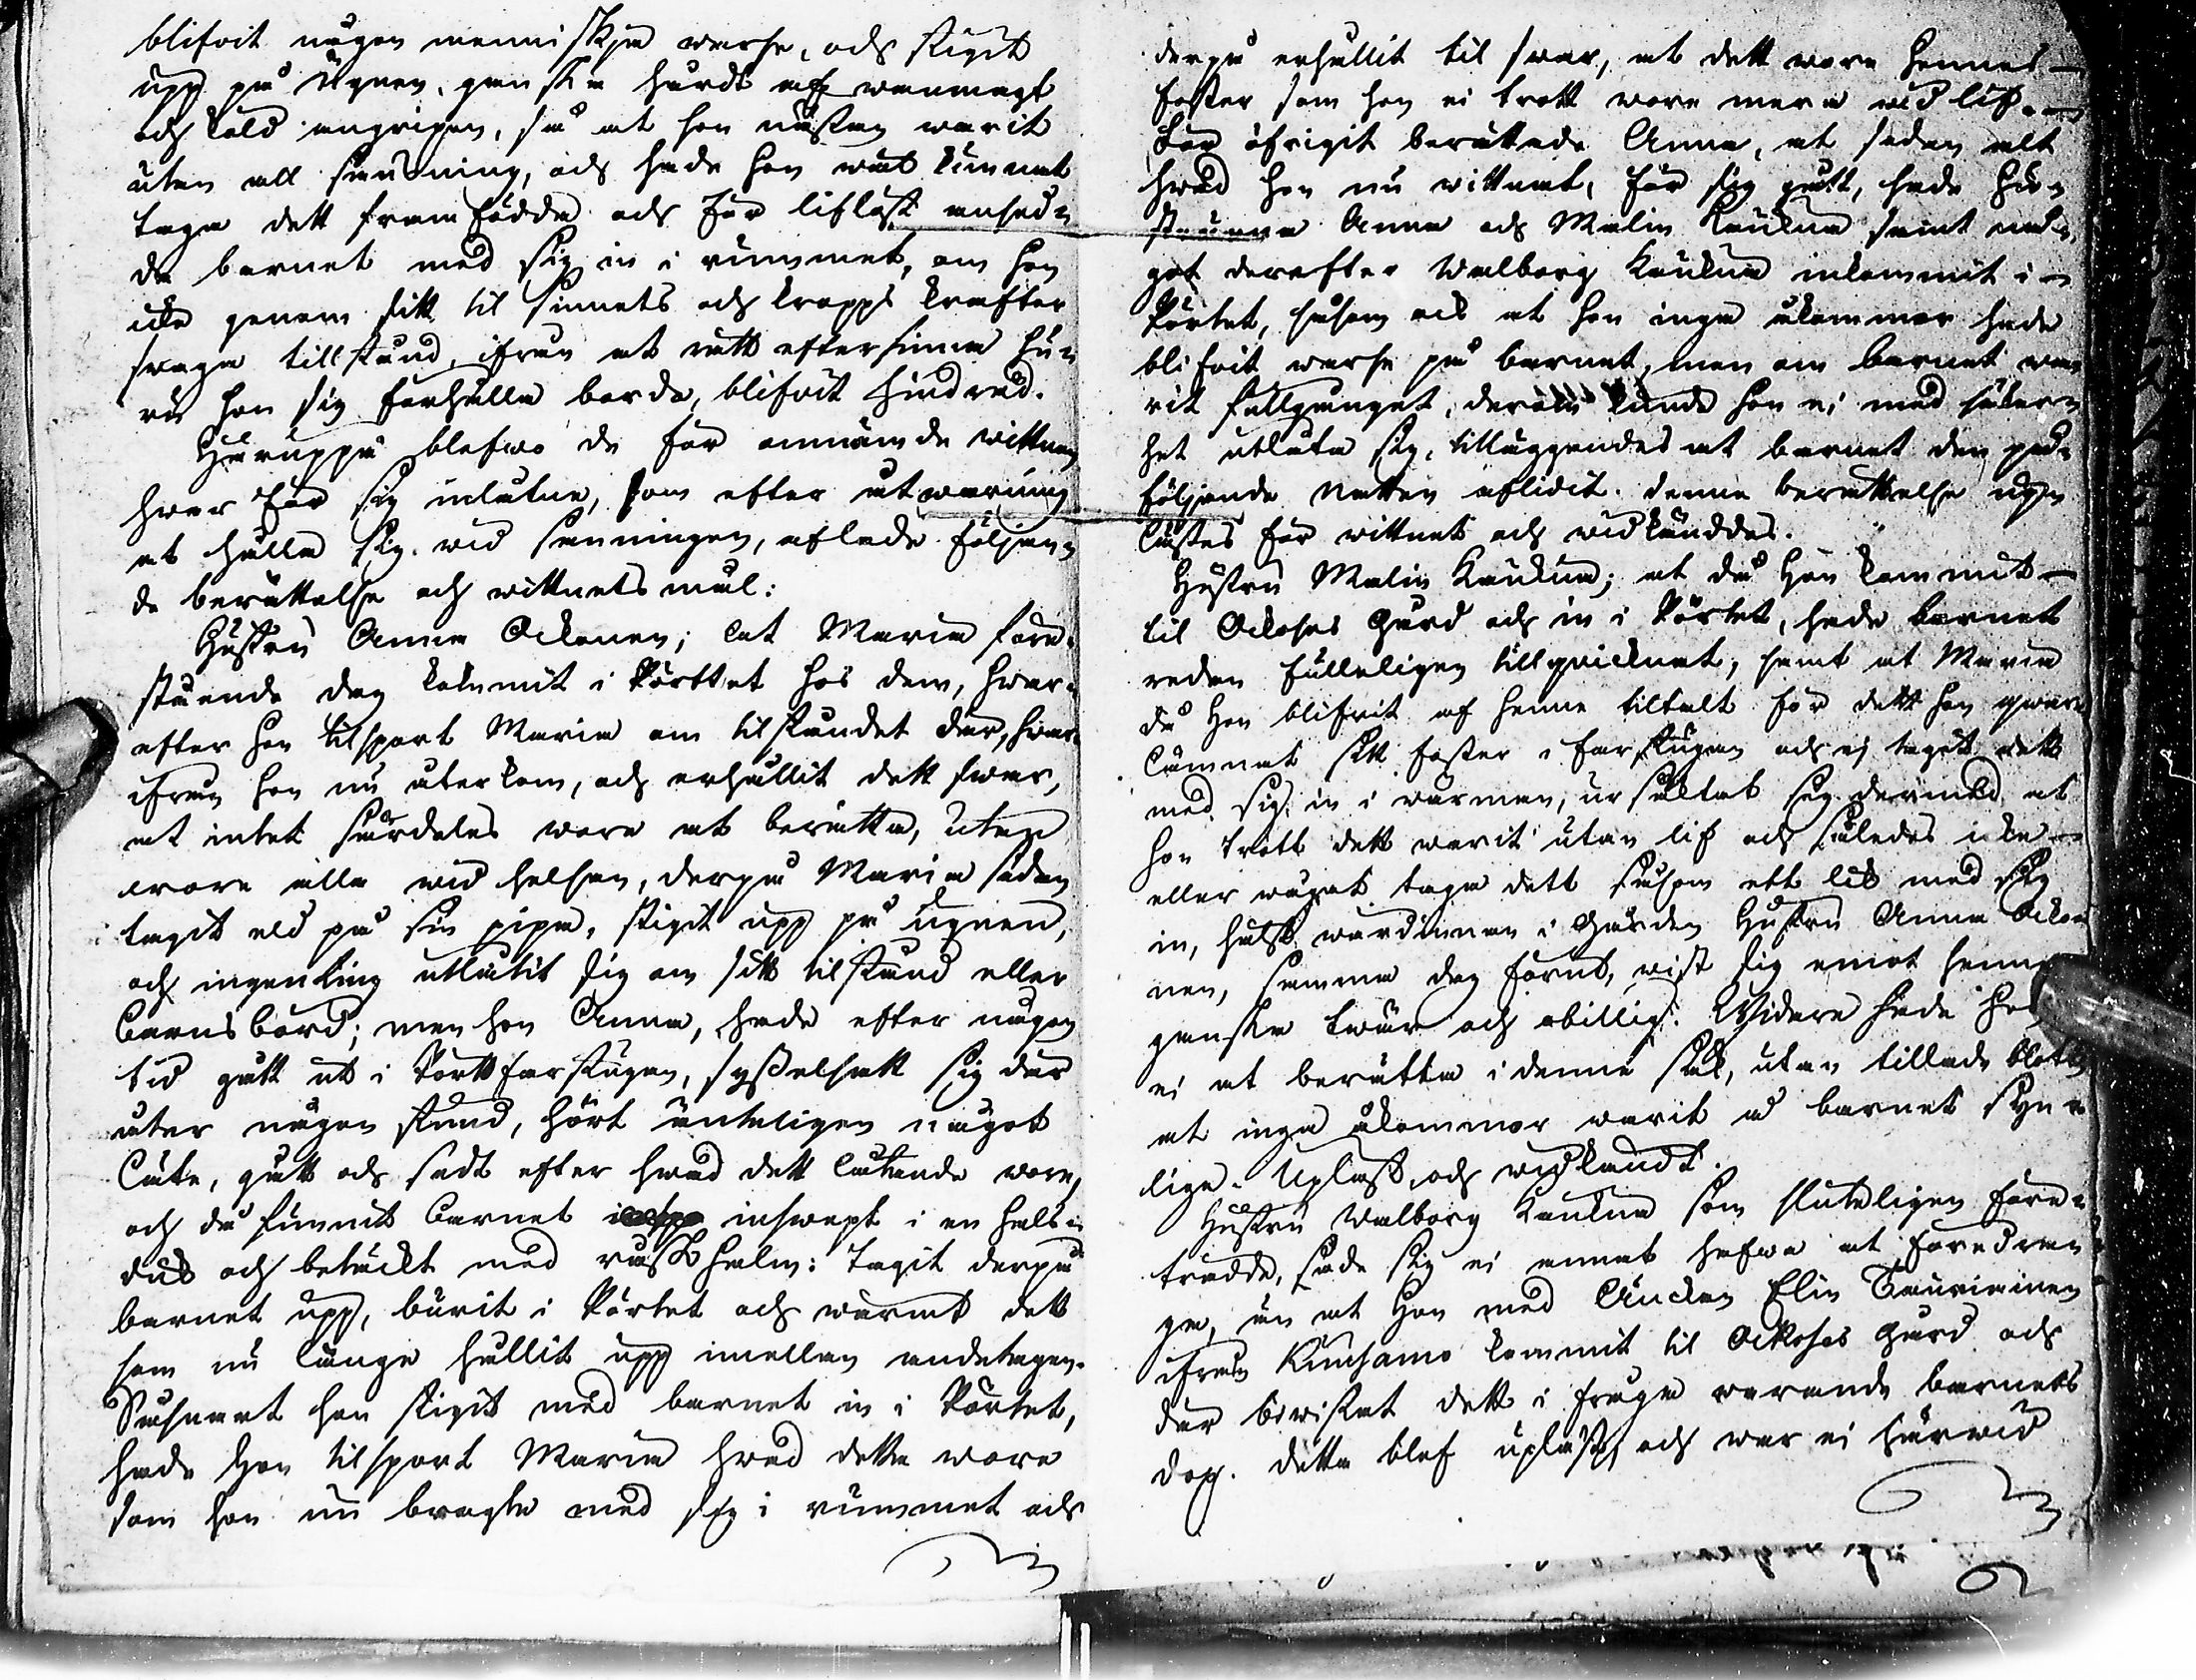 blifvit någon menniskja warse, och stigit
upp på Ugnen, ganska hårdt af wanmagt
och köld angripen, så at hon nästan warit
utan all sansning, och hade hon wäl kunnat
taga dett framfödda och för liflöst ansed-
da barnet med sig in i rummet, om hon
icke genom sitt til sinnets och kropps krafter
swaga tillstånd, ifrån at rätt eftersinna hu-
ru hon sig förhålla borde, blifvit hindrad.
Häruppå blefwo deför omnämde wittnen
hwar för sig inlåtne, som efter åtwarning
at hålla sig wid sanningen, aflade följan-
de berättelse och wittnetsmål:
Hustru Anna Ockonen; lat Maria före-
stående dag kommit i Pörttet hos dem, hwar-
efter hon tilsport Maria om tilståndet där, hwar-
ifrån hon nu återkom, och erhållit dett swar,
at intet särdeles wore at berätta, utan
wore alla wid helsan, derpå Maria sedan
tagit eld på sin pipa, stigit upp på ugnen,
och ingenting utlåtit sig om sitt tilstånd eller
barnsbörd; men hon Anna, hade efter någon
tid gått ut i Pörttförstugan, sysselsatt sig där
uter någon stund, hört änteligen något
läte, gått och sedt efter hwad dett låtande wore,
och då funnit barnet inswept i en hals-
duk och betäckt med rusk halm: Tagit derpå
barnet upp, burit i Pörtet och wärmt dett
som nu länge hållit upp imellan andetagen.
Såsnart hon stigit med barnet in i Pörtet,
hade hon tilsport Maria hwad detta wore
som hon nu bragte med sig i rummet och
derpå erhållit til swar, at dett wore hennes
foster som hon ei trott wore mera wid lif.
För öfrigit berättade Anna, at sedan alt
hwad hon nu wittnat, för sig gått, hade hu-
struarna Anna och Malin Kaukua samt nå-
got derefter Walborg Kaukua inkommit i
Pörtet, såsom ock at hon inga åkommor hade
blifvit warse på barnet, men om barnet wa-
rit fullgånget, derom kunde hon ei med säker-
het utlåta sig, tilläggandes at barnet den på-
följande Natten aflidit. denna berättelse upp-
lästes för wittnet och widkänddes.
Hustru Malin Kaukua; at då hon kommit
til Ockoses Gård och in i Pörtet, hade barnet
redan fulleligen tillquicknat, samt at Maria
då hon blifvit af henne tiltalt för dett hon qwar
lämnat sitt foster i farstugan och ej tagit dett
med sig in i wärman, ursäktat sig dermed at
hon trott dett warit utan lif och således icke
eller wågat taga dett såsom ett lik med sig
in, hälst wärdinnan i Gården Hustru Anna Ocko-
nen, samma dag förut, wist sig emot henne
ganska twär och obillig. Widare hade hon
ei at berätta i denna sak, utan tillade blott
at inga åkommor warit å barnet syn-
lige. Upläst, och widkändt.
Hustru Walborg Kaukua som sluteligen före-
trädde, sade sig ei annat hafwa at föredra-
ga, än at hon med Änckan Elin Tauriainen
ifrån Kuusamo kommit til Ockoses gård och
där bewistat dett i fråga warande barnets
dop. detta blef upläst, och war ei härwid